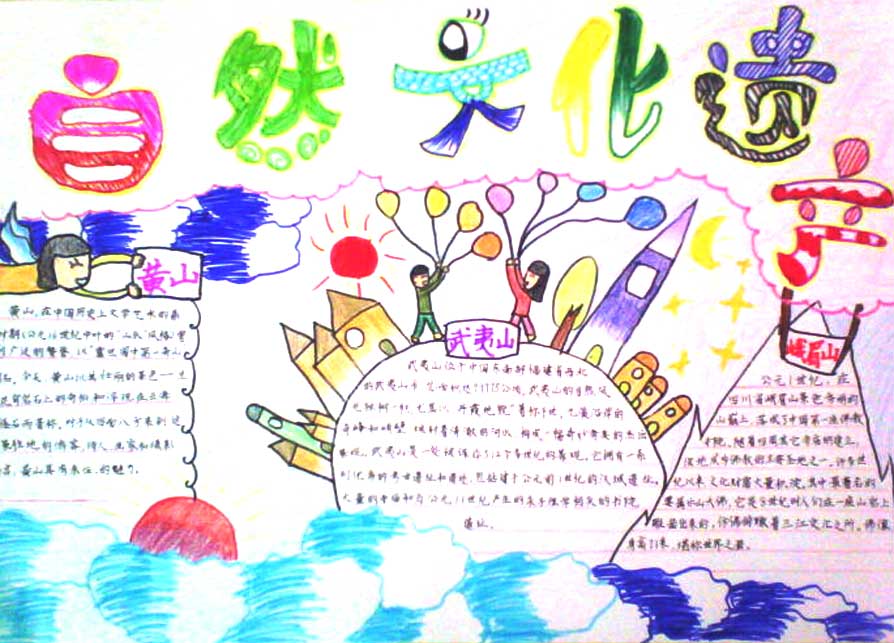 自然文化遗产
黄山
黄山,在中国历史上文学艺术的鼎
时期(公元16世纪中叶的"山水"风格)曾
到广泛的赞誉,以"震旦国中第一奇山
名。今天,黄山以其壮丽的景色—生
花岗岩石上的奇松和浮现在云海
怪石而著称。对于从四面八方来到这
景胜地的游客,诗人、画家和摄影
言,黄山具有永恒的魅力。
武夷山
武夷山位于中国东南部福建省西北
的武夷山市,总面积达99975公顷。武夷山的自然风
光独树一帜,尤其以"丹霞地貌"著称于世,九曲沿岸的
奇峰和峭壁,映衬着清澈的河水,构成一幅奇妙秀美的杰出
景观。武夷山是一处被保存了12个多世纪的景观。它拥有一系
列优秀的考古遗址和遗迹,包括建于公元前1世纪的汉城遗址、
大量的寺庙和与公元11世纪产生的朱子理学相关的书院
遗址。
峨眉山
公元1世纪,在
四川省峨眉山景色秀丽的
山巅上,落成了中国第一座佛教
寺院。随着四周其它寺庙的建立,
该地成为佛教的主要圣地之一。许多世
纪以来,文化财富大量积淀,其中最著名的
要属乐山大佛,它是8世纪时人们在一座山岩上
雕凿出来的,仿佛俯瞰着三江交汇之所。佛像
身高71米,堪称世界之最。